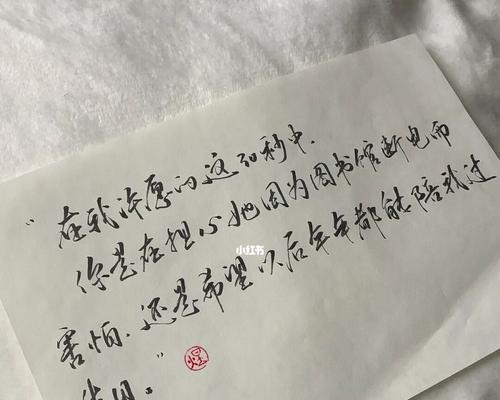 “在我许愿的这20秒中，
你是在担心她因为图书馆断电而
小红书
害怕，还是希望以后年年都能陪我过
生日。”